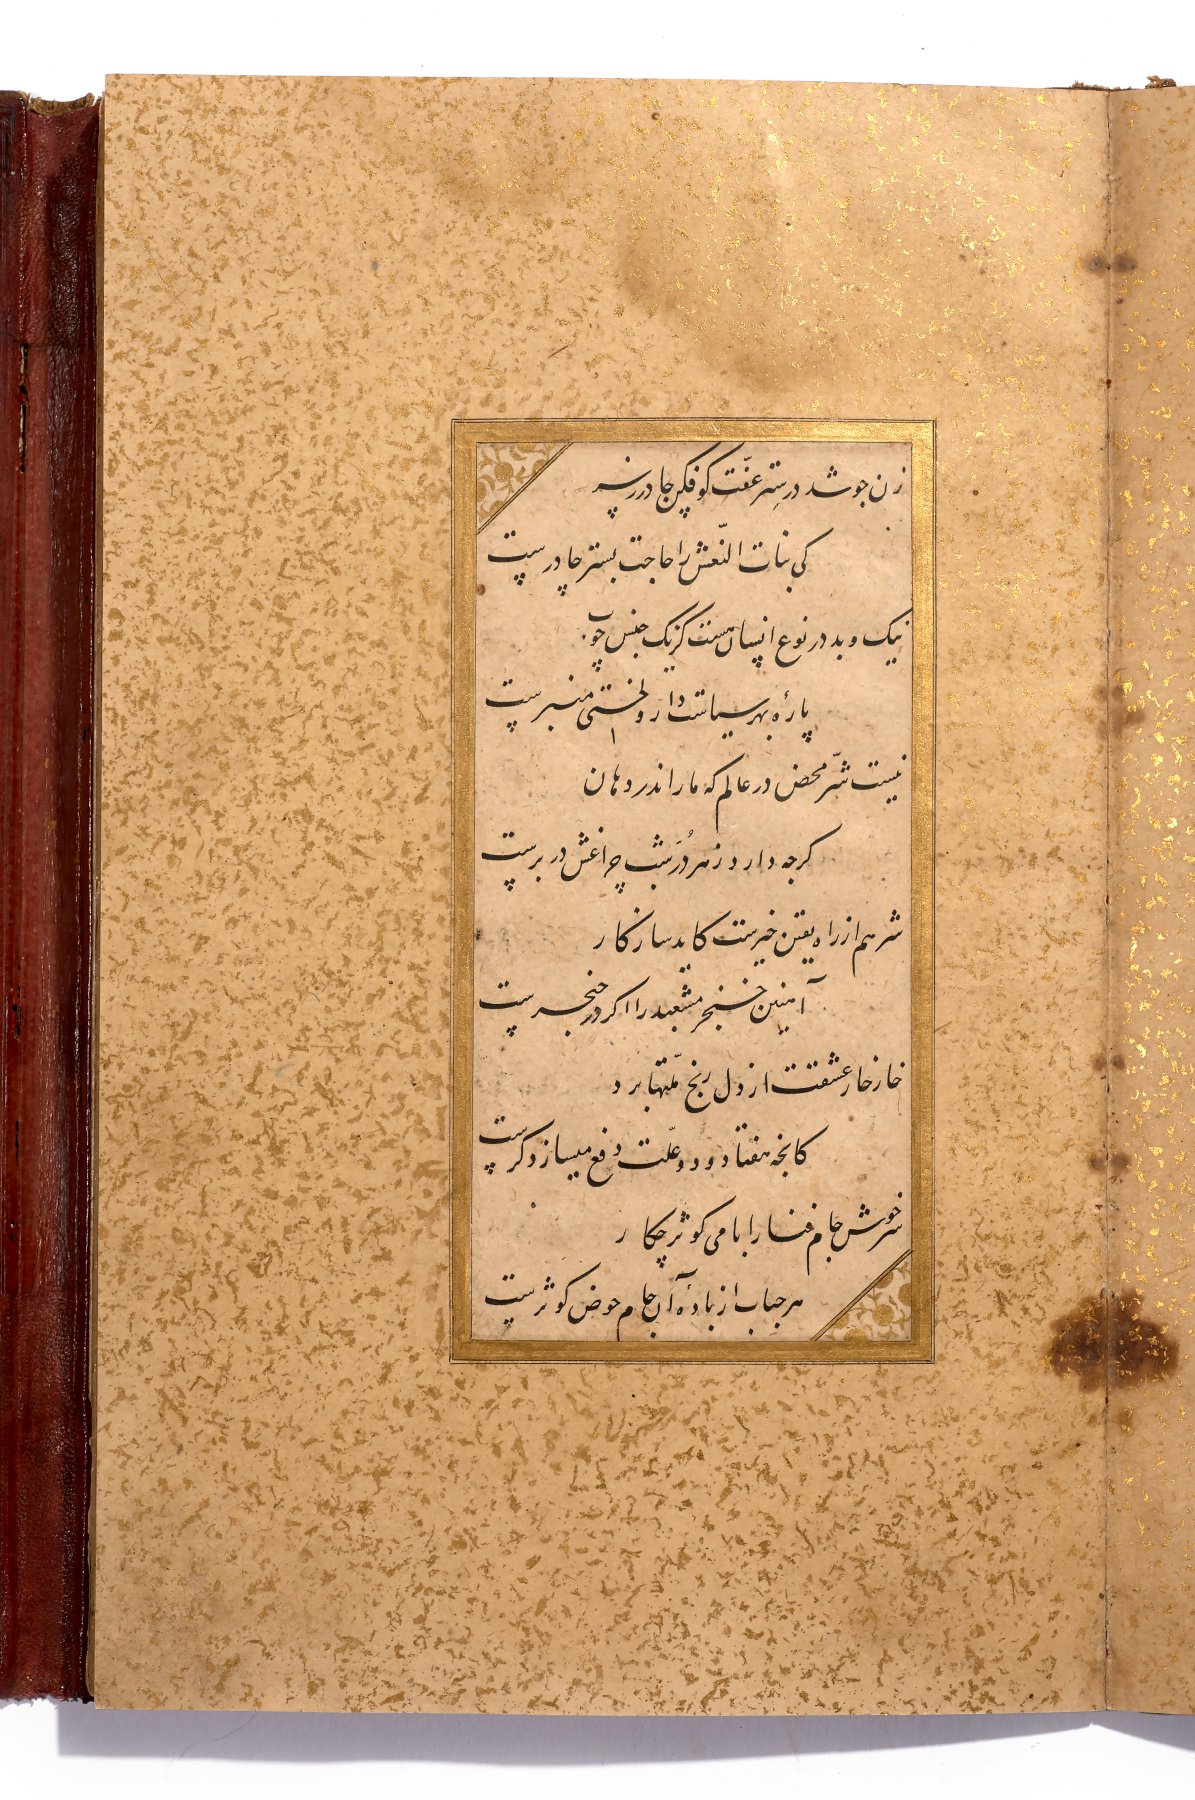 زن جو شد در ستر عفّت کو فکن چادر ز سر
کی بنات النّعش را حاجت بستر چادرست
نیک و بد در نوع انسان هست کز یک جنس چوب
پارهٔ بهر سیاست دار و لختی منبرست
نیست شرّ محض در عالم که مار اندر دهان
کرچه دارد زهر دُر شب چراغش در برست
شر هم از راه یقین خیرست کاید سازکار
آهنین خنجر مشعبد را اکر در حنجرست
خار خار عشقت از دل رنج ملّتها برد
کانجه هفتاد و دو علّت دفع میسازد کرست
سرخوش جام فنا را با می کوثر چکار
هر حباب از بادهٔ آن جام حوض کوثرست